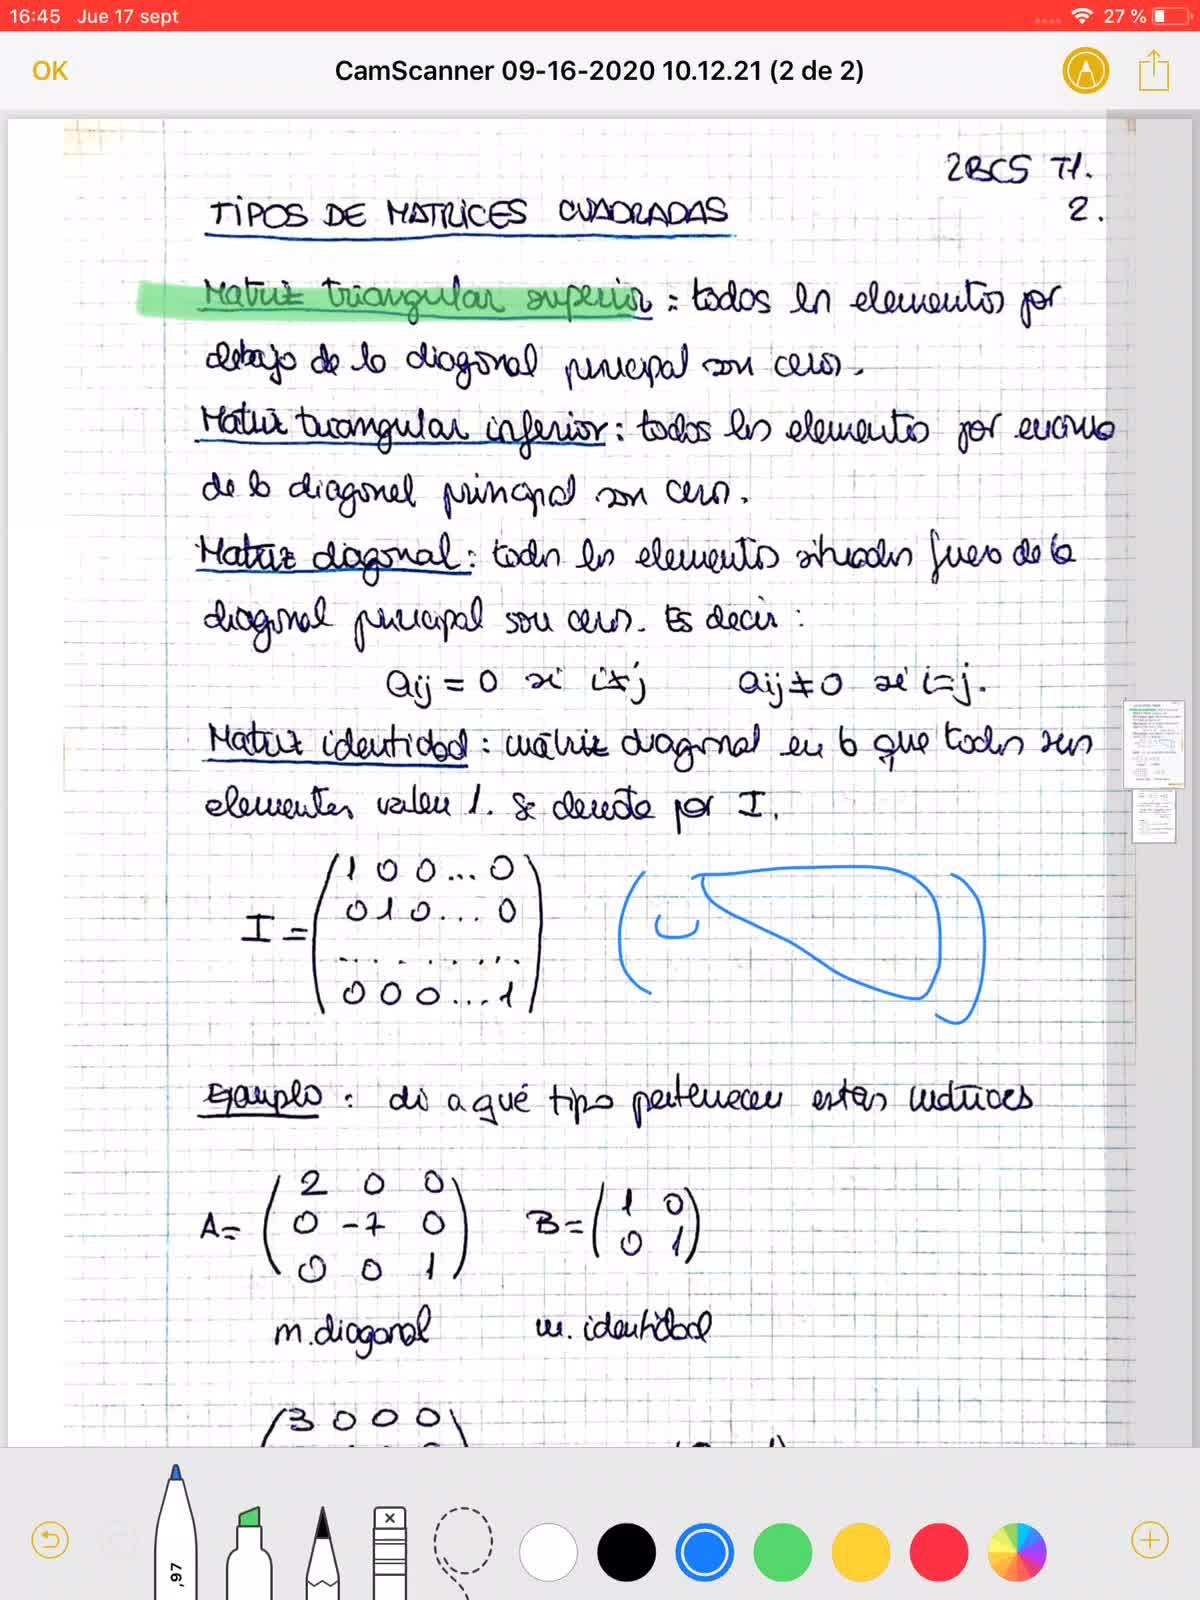 16:45 Jue 17 sept
27 %
OK
CamScanner 09-16-2020 10.12.21 (2 de 2)
2BCS T1.
2.
TIPOS DE MATRICES CUADRADAS
Matriz triangular superior : todos los elementos por
debajo de la diagonal principal son ceros.
Matriz triangular inferior : todos los elementos por encima
de la diagonal principal son ceros.
Matriz diagonal : todos los elementos situados fuera de la
diagonal principal son ceros. Es decir :
aij = 0 si i≠j aij ≠ 0 si i=j.
Matriz identidad : matriz diagonal en la que todos sus
elementos valen 1. Se denota por I.
I = ( 1 0 0 ... 0
0 1 0 ... 0
... ... ...
0 0 0 ... 1 )
( 0 )
Ejemplo : di a qué tipo pertenecen estas matrices
A= ( 2 0 0
0 -7 0
0 0 1 )
B= ( 1 0
0 1 )
m. diagonal m. identidad
( 3 0 0 0 )
97